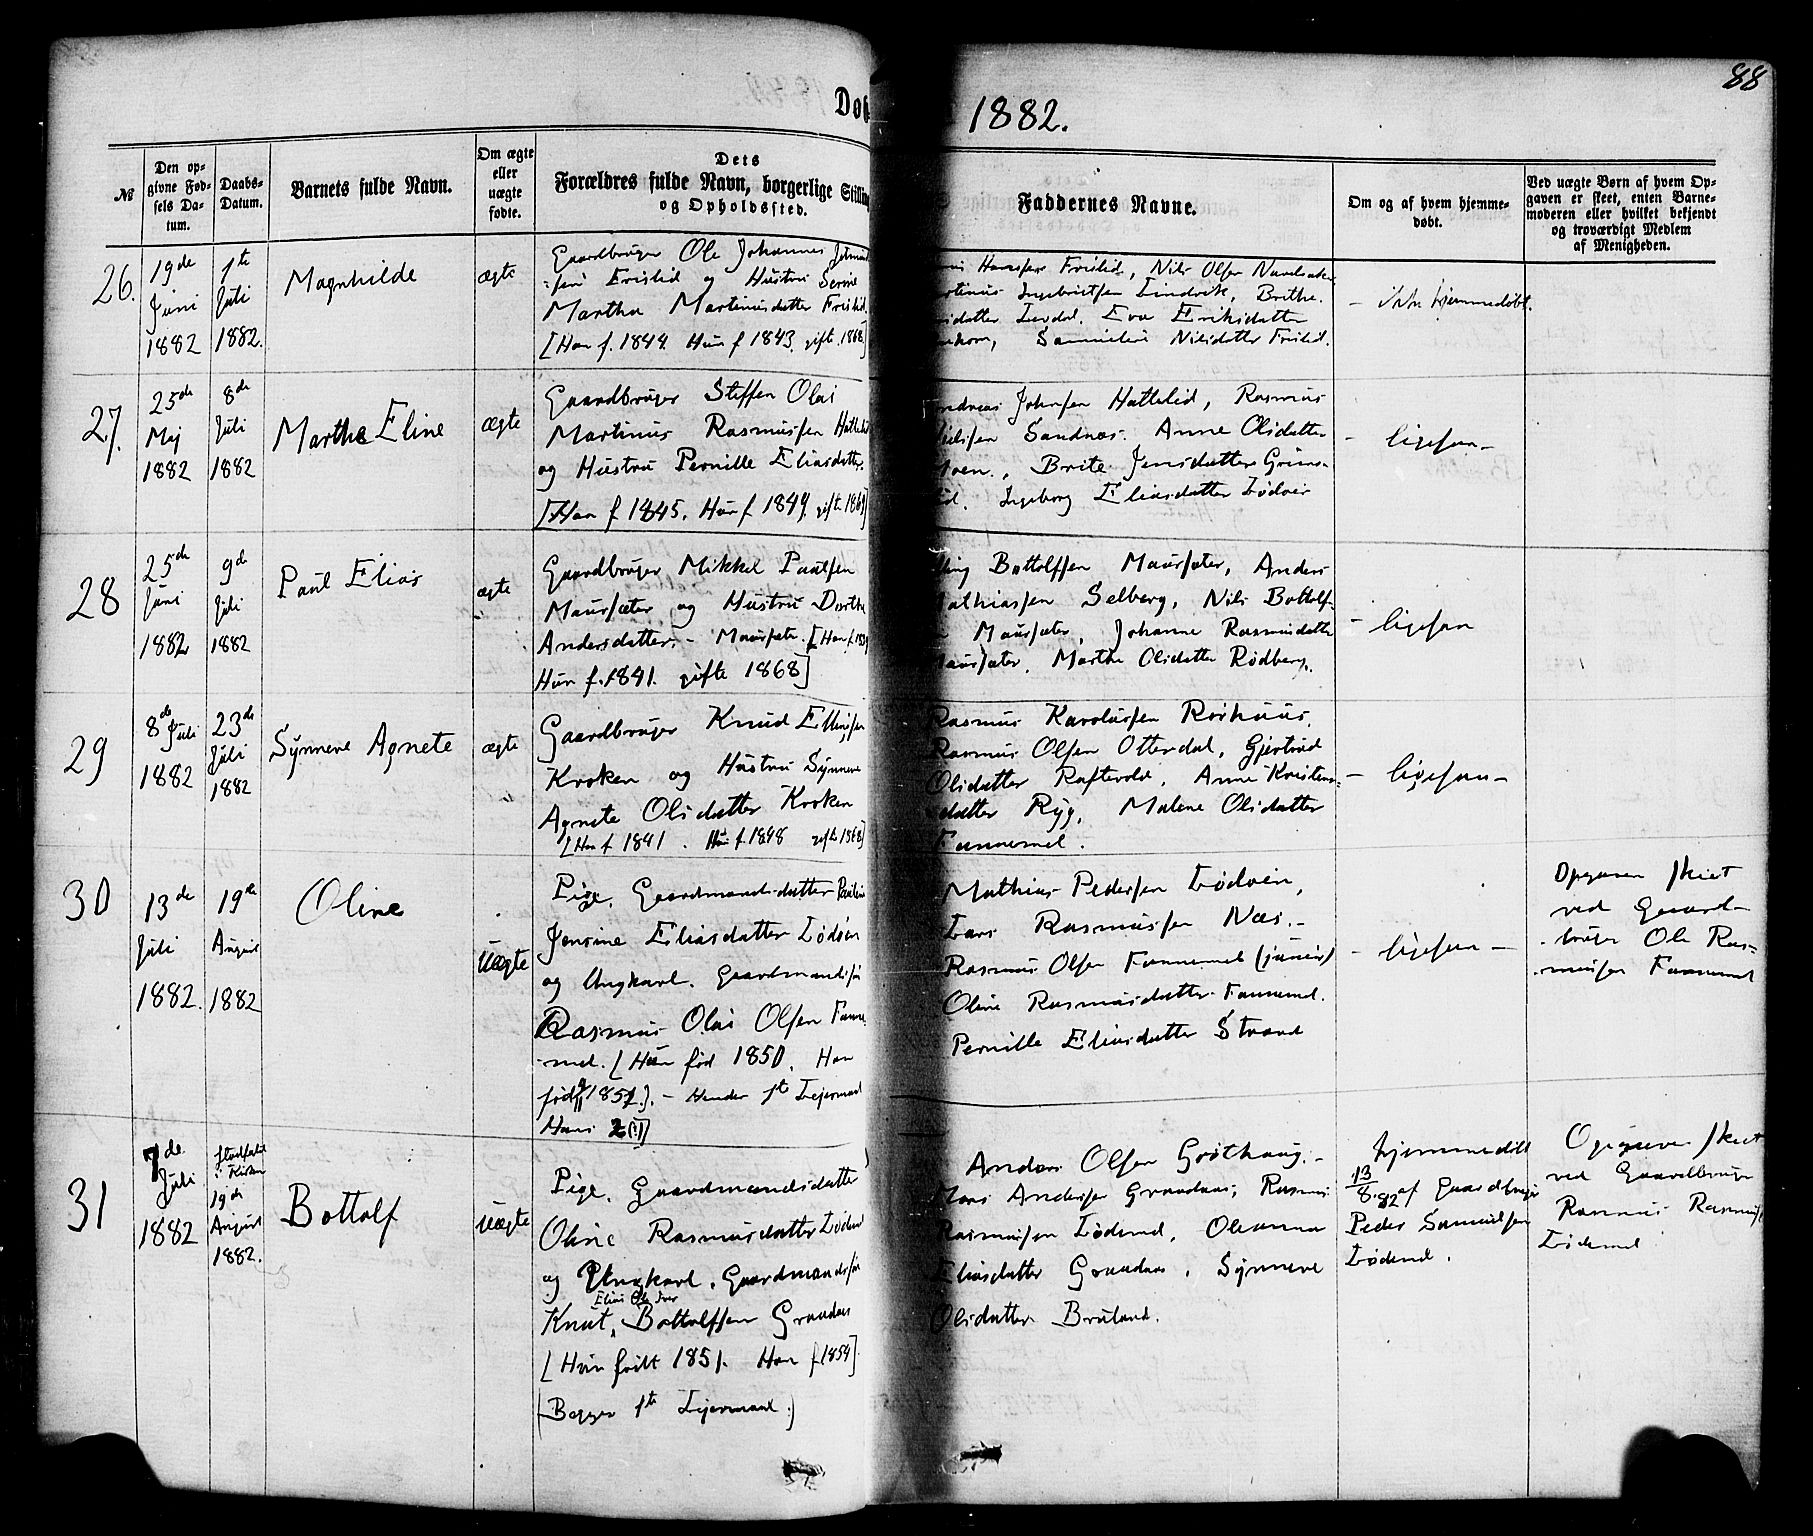 88
Døb
1882.
№
Den op-
givne Fød-
sels Da-
tum.
Daabs-
Datum.
Barnets fulde Navn.
Om ægte
eller
uægte
fødte.
Dets
Forældres fulde Navn, borgerlige Stilling
og Opholdssted.
Faddernes Navne.
Om og af hvem hjemme-
døbt.
Ved uægte Børn af hvem Op-
gaven er skeet, enten Barne-
moderen eller hvilket bekjendt
og troværdigt Medlem
af Menigheden.
26.
19de
Juni
1882
1te
Juli
1882.
Magnhilde
ægte
Gaardbruger Ole Johannes
Frislid og Hustru Serine
Martha Martinusdatter Frislid.
[Han f. 1844. Hun f 1843. gifte 1868]
Hansen Frislid, Nils Olsen
Ingebrictsen Lindvik, Brithe
Eva Eriksdatter
Nilsdatter Frislid.
- ikke hjemmedøbt.
27.
25de
Maj
1882
8de
Juli
1882
Marthe Eline
ægte
Gaardbruger Steffen Olai
Martinus Rasmussen
og Hustru Pernille Eliasdatter
[Han f 1845. Hun f 1849. gifte 1869]
Johnsen Hattelid, Rasmus
Sandnæs. Anne Olsdatter
Brite Jensdatter
Ingeborg Eliasdatter Lødøen
- ligesaa -
28
25de
Juni
1882
9de
Juli
1882
Paul Elias
ægte
Gaardbruger Mikkel Paulsen
Maursæter og Hustru Dorthe
Andersdatter - Maursæte. [Han f.
Hun f. 1841. gifte 1868]
Bottolfsen Maursæter, Anders
Mathiassen Selberg, Nils Bottolf-
Maursæter, Johanne Rasmusdatter
Maursæter, Marthe Olsdatter Rødberg.
- ligesaa
29
8de Juli
1882
23de
Juli
1882
Synneve Agnete
ægte
Gaardbruger Knud Ellingsen
Kroken og Hustru Synneve
Agnete Olsdatter Kroken
[Han f 1841. Hun f. 1848 gifte 1868]
Rasmus Karolussen Roshuus,
Rasmus Olsen Otterdal, Gjertrud
Olsdatter Raftevold, Anne Kristens-
datter Ryg, Malene Olsdatter
Fannemel.
- ligesaa -
30
13de
Juli
1882.
19de
August
1882
Oline
Uægte
Pige, Gaardmandsdatter
Jensine Eliasdatter Lødøen
og Ungkarl, Gaardmandssøn
Rasmus Olai Olsen Fanne-
mel. [Hun fød 1850. Han
født 1851.]. - Hendes 1te Leiermaal
Hans 2
Mathias Pedersen Lødøen,
Lars Rasmussen Næs. -
Rasmus Olsen Fannemel (junior)
Oline Rasmusdatter Fannemel.
Pernille Eliasdatter Strand
- ligesaa -
Opgaven skeet
ved Gaard-
bruger Ole Ras-
mussen Fannemel
31
7de
Juli
1882
stadfæstet
i Kirken
19de
August
1882.
Bottolf
Uægte
Pige, Gaardmandsdatter
Oline Rasmusdatter Lødemel
og Ungkarl, Gaardmandssøn
Elias Ole Iver
Knut, Bottolfsen Graadæs
[Hun født 1851. Han f 1859].
(Begges 1te Leiermaal.)
Anders Olsen Grøthaug. -
Hans Andersen Graadaas, Rasmus
Rasmussen Lødemel, Oleanna
Eliasdatter Graadaas, Synneve
Olsdatter Bruland.
hjemmedøbt
13/8. 82 af Gaardbruger
Peder Samuelsen
Lødemel.
Opgaven skeet
ved Gaardbruger
Rasmus Rasmuss
Lødemel